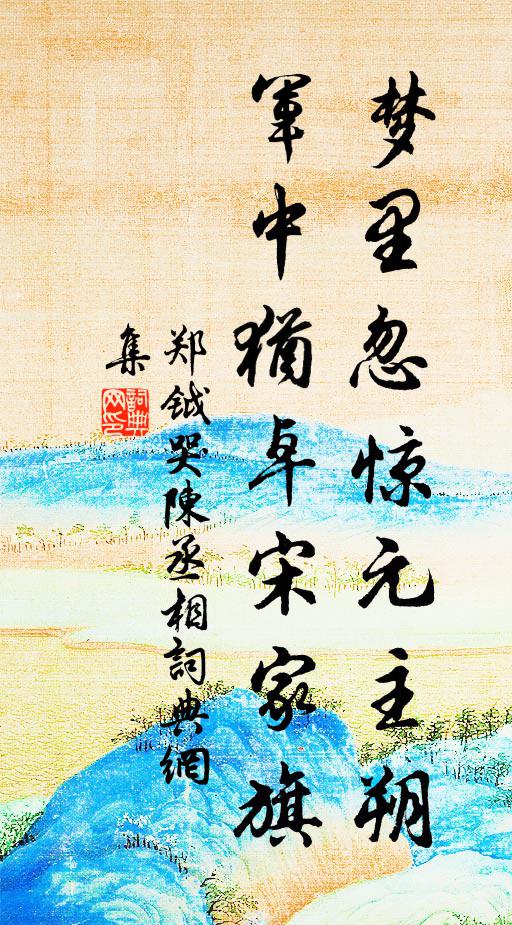 梦里忽惊元主朔
軍中猶卓宋家旗
郑钺哭陳丞相詞典網
集
詞典
网印